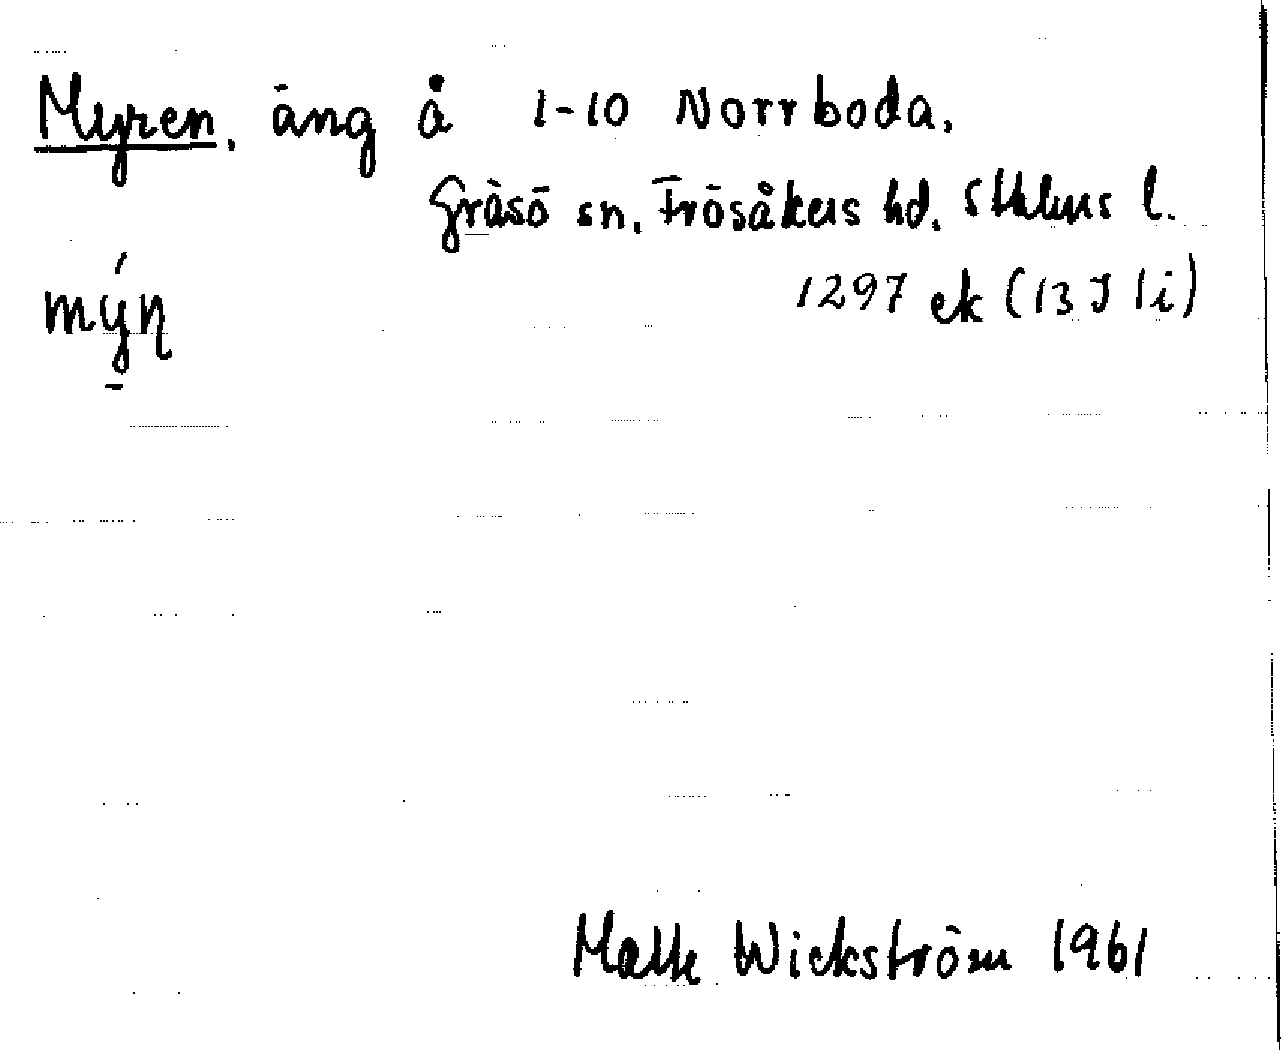 Myren, äng å 1-10 Norrboda,
Gräsö sn, Frösåkers hd. Sthlms l.
mýn
1297 ek (13J 1i)
Wickström 1961